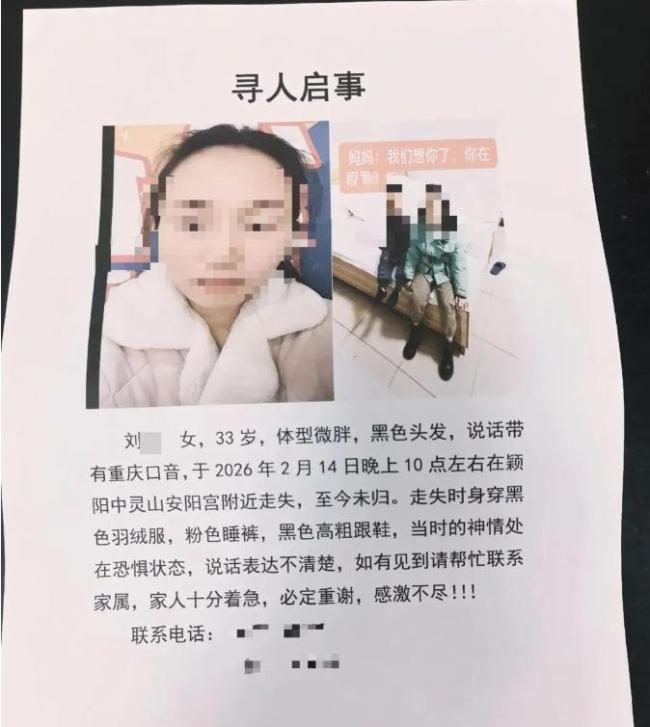 寻人启事
妈妈：我们想你了，你在
刘 女，33岁，体型微胖，黑色头发，说话带
有重庆口音，于2026年2月14日晚上10点左右在颍
阳中灵山安阳宫附近走失，至今未归。走失时身穿黑
色羽绒服，粉色睡裤，黑色高粗跟鞋，当时的神情处
在恐惧状态，说话表达不清楚，如有见到请帮忙联系
家属，家人十分着急，必定重谢，感激不尽!!!
联系电话：